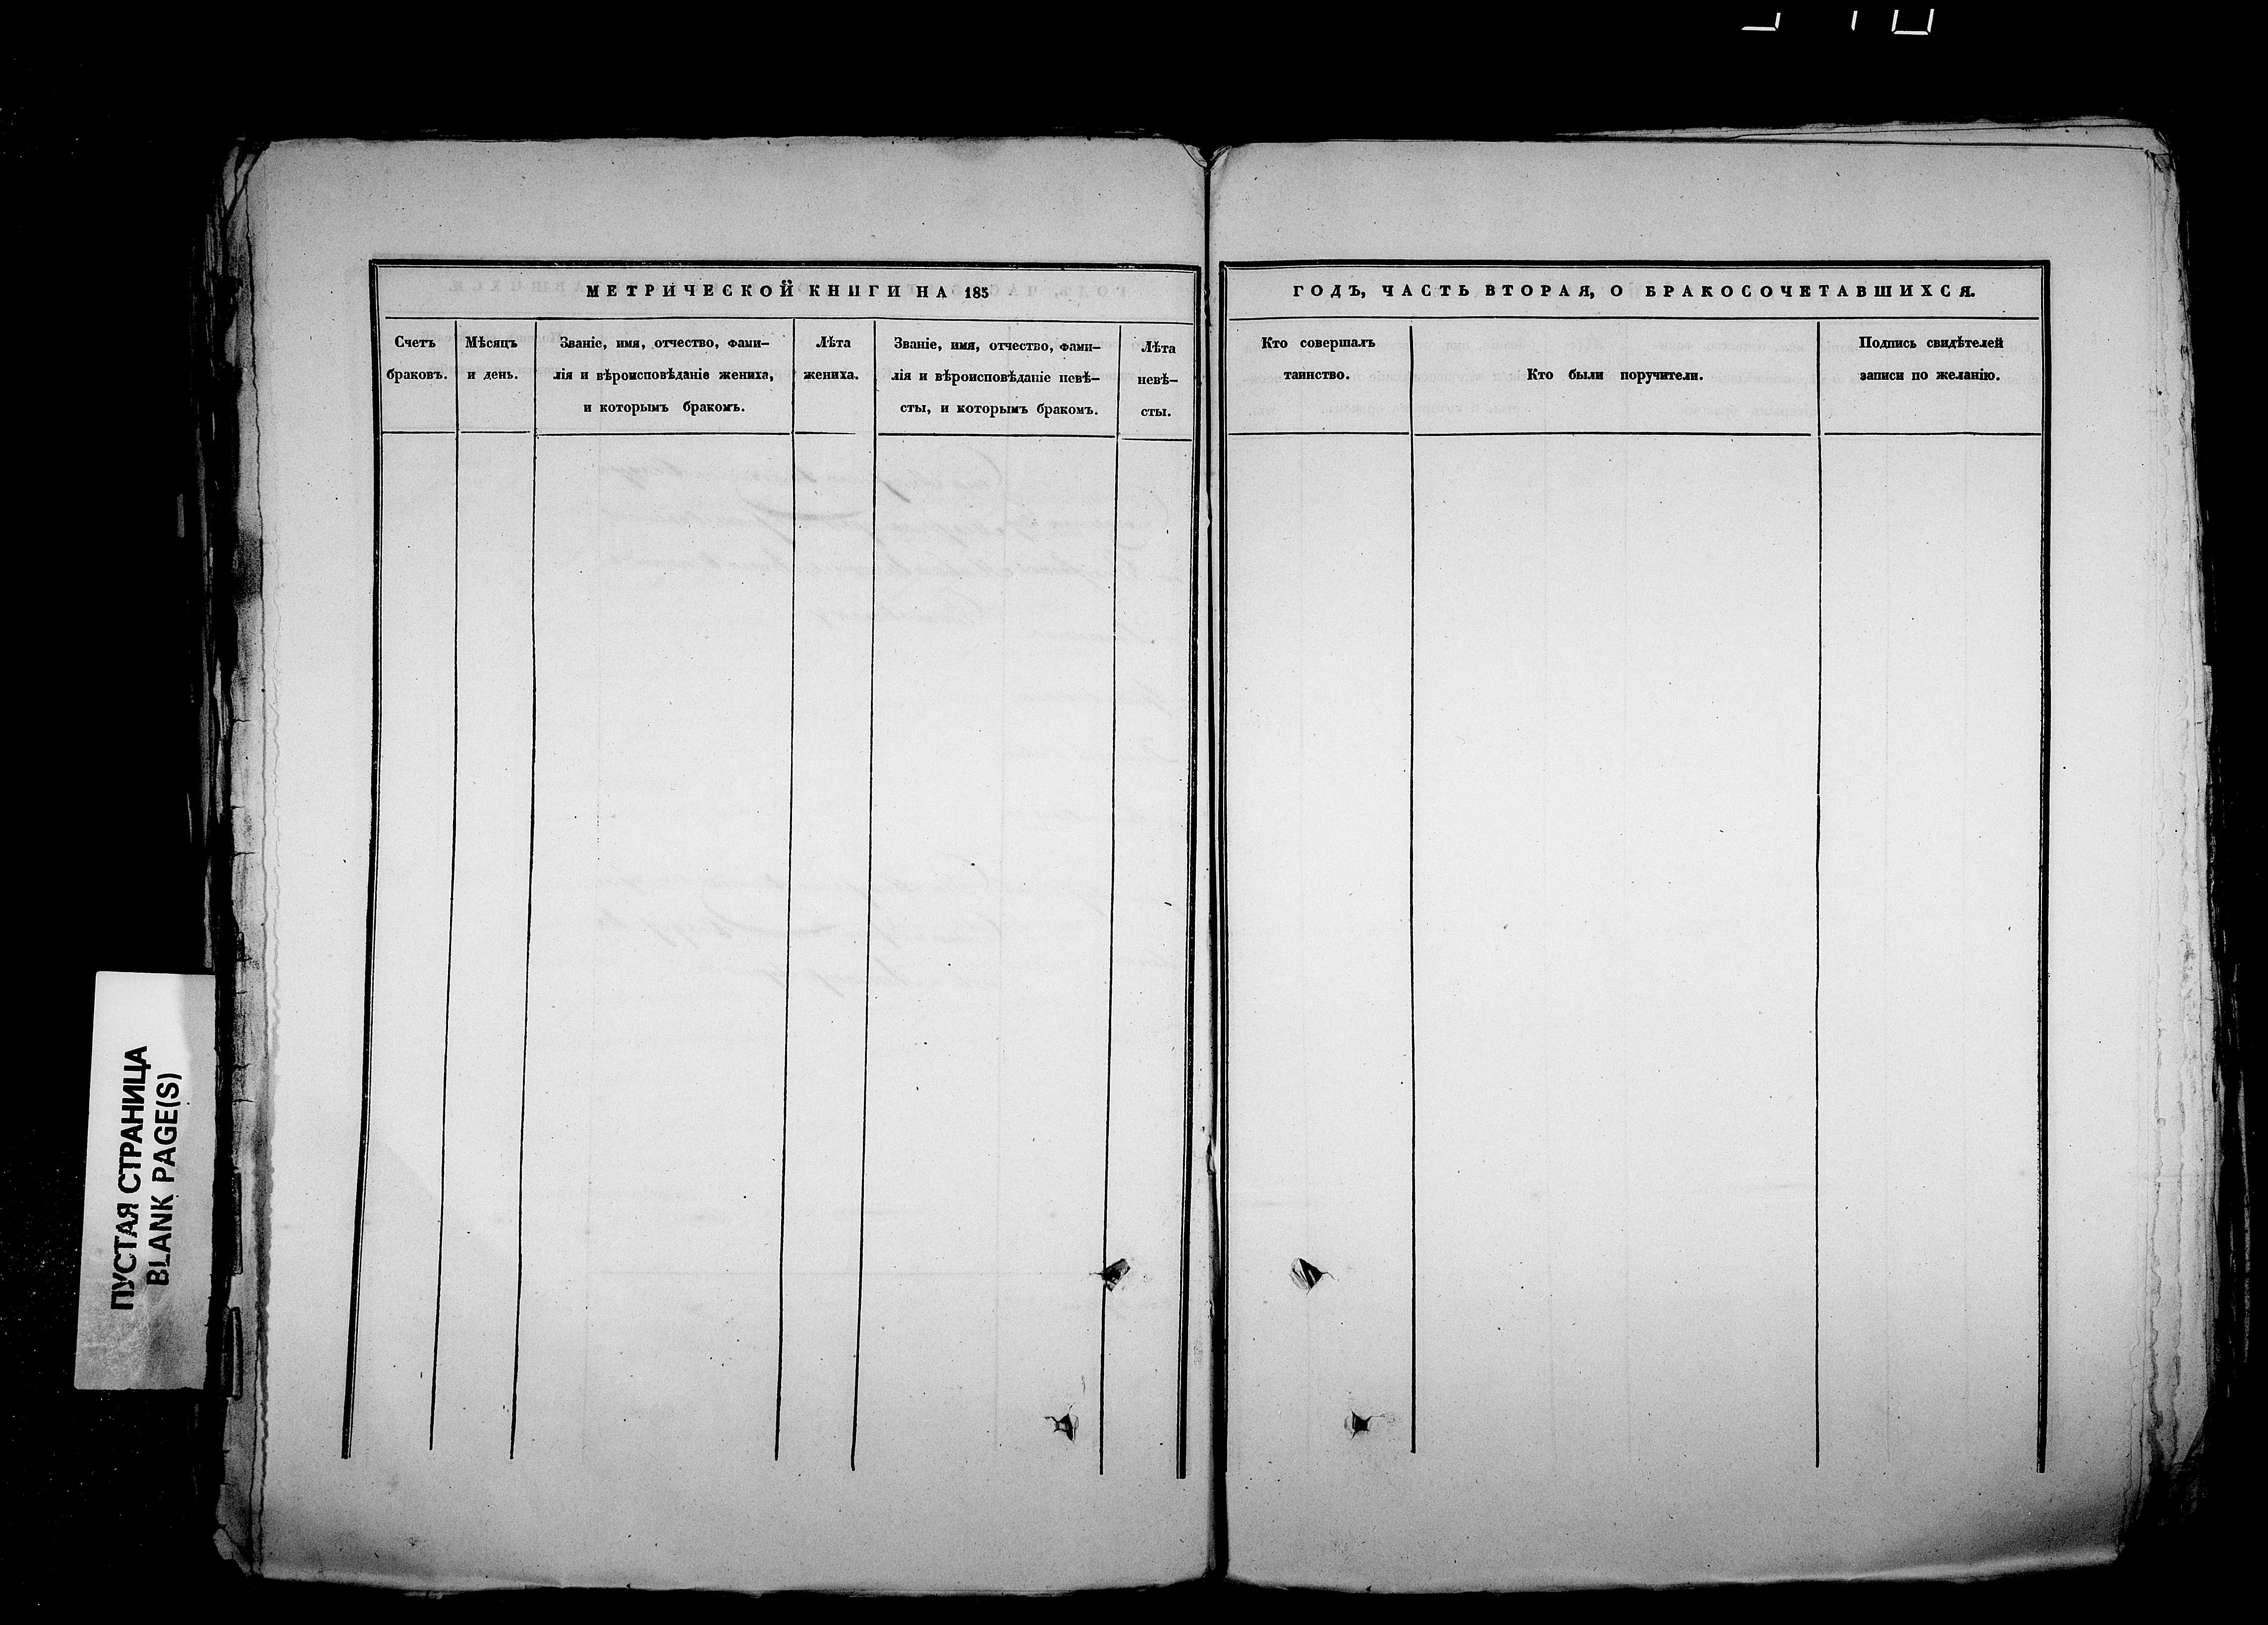 МЕТРИЧЕСКОЙ КНИГИ НА 185
Счетъ
браковъ.
Мѣсяцъ
и день.
Званіе, имя, отчество, фами-
лія и вѣроисповѣданіе жениха,
и которымъ бракомъ.
Лѣта
жениха.
Званіе, имя, отчество, фами-
лія и вѣроисповѣданіе невѣ-
сты, и которымъ бракомъ.
Лѣта
невѣ-
сты.
ГОДЪ, ЧАСТЬ ВТОРАЯ, О БРАКОСОЧЕТАВШИХСЯ.
Кто совершалъ
таинство.
Кто были поручители.
Подпись свидѣтелей
записи по желанію.
ПУСТАЯ СТРАНИЦА
BLANK PAGE(S)